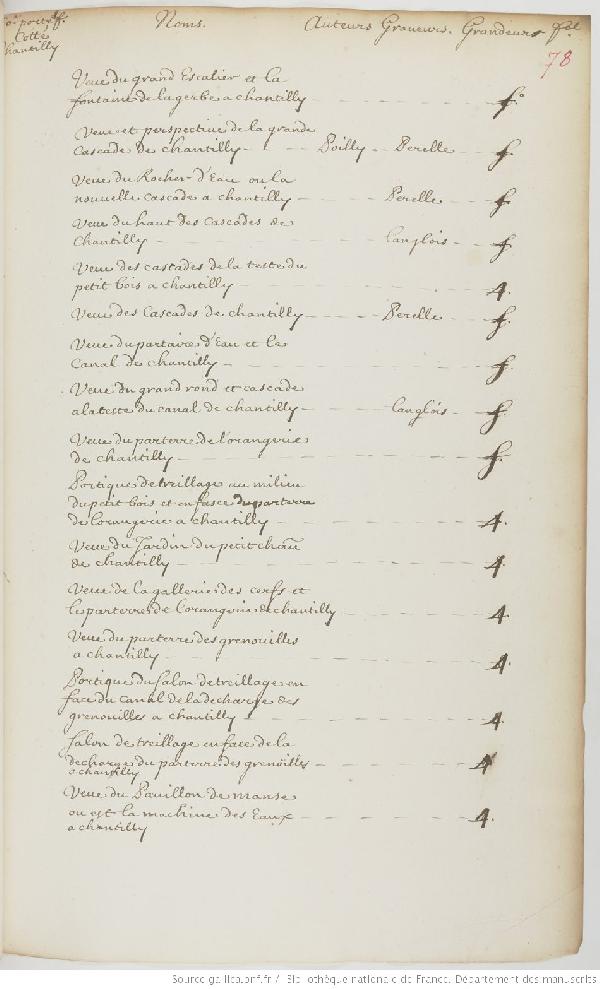 Cotté Noms. Auteurs Graveurs. Grandeurs fol
Chantilly
78
Veue du grand Escalier et la
fontaine de la gerbe a chantilly f.o
Veue et perspective de la grande
Cascade de chantilly Poilly Perelle f.
Veue du Rocher d'Eau ou la
nouvelle cascade a chantilly Perelle f.
Veue du haut des Cascades de
Chantilly Langlois f.
Veue des cascades de la teste du
petit bois a chantilly 4.
Veue des Cascades de chantilly Perelle f.
Veue du partaire d'Eau et le
Canal de chantilly f.
Veue du grand rond et cascade
a la teste du canal de chantilly Langlois f.
Veue du parterre de l'orangerie
de chantilly f.
Portique de treillage au milieu
du petit bois et en face du parterre
de l'orangerie a chantilly 4.
Veue du Jardin du petit chau
de chantilly 4.
Veue de la gallerie des cerfs et
le parterre de l'orangerie de chantilly 4.
Veue du parterre des grenouilles
a chantilly 4.
Portique du salon de treillage en
face du canal de la decharge des
grenouilles a chantilly 4.
salon de treillage en face de la
decharge du parterre des grenoilles 4
a chantilly
Veue du Pavillon de manse
ou est la machine des Eaux 4.
a chantilly
Source gallica.bnf.fr / Bibliothèque nationale de France. Département des manuscrits